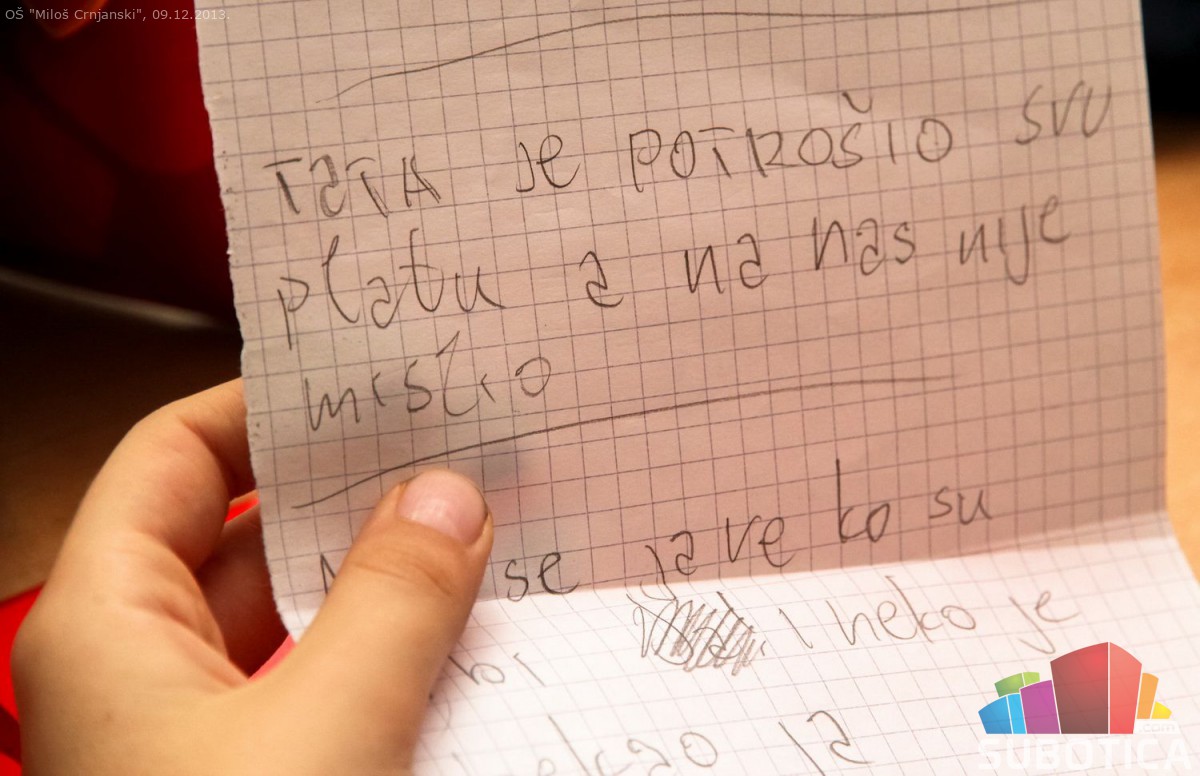 OŠ "Miloš Crnjanski", 09.12.2013.
TATA JE POTROŠIO SVU
platu a na nas nije
mislio
se jave ko su
i neko je
ja
.com
SUBOTICA